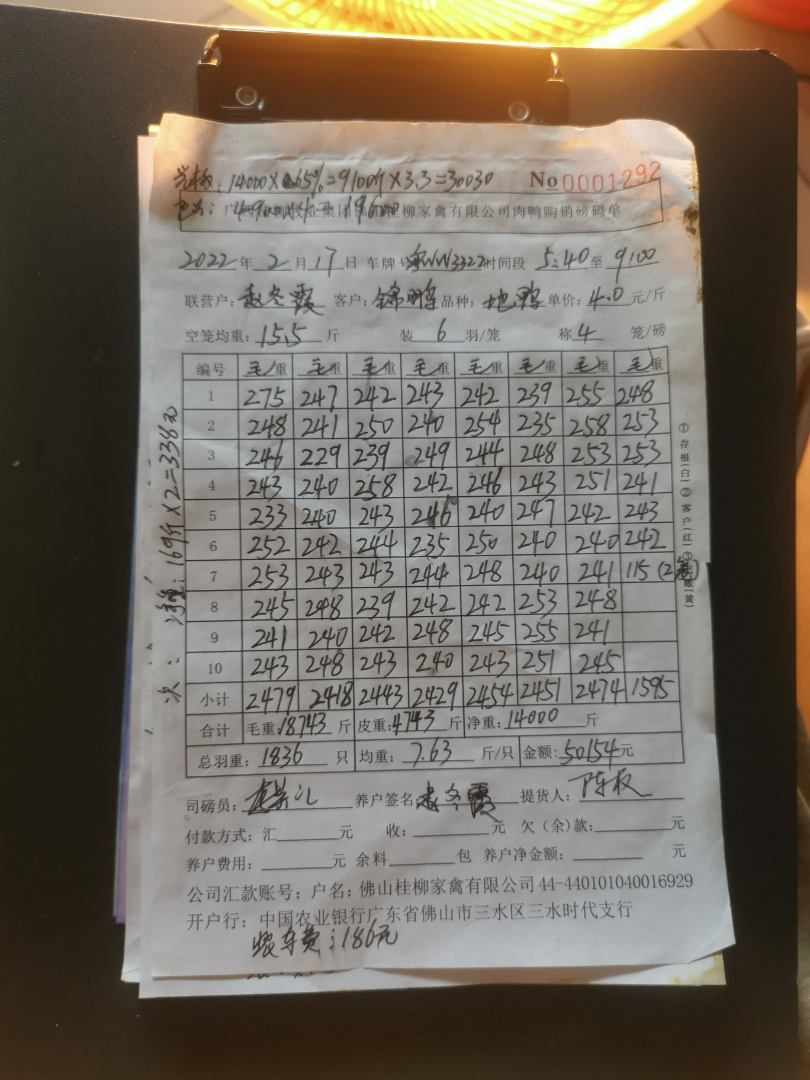 14000×65%=9100斤×3.3=30030 No 0001292
桂柳家禽有限公司肉鸭购销磅码单
2022年2月17日 车牌号 3322 时间段 5:40至9:00
联营户: 赵冬霞 客户: 锦鹏 品种: 地鸭 单价: 4.0元/斤
空笼均重: 15.5斤 装6羽/笼 称4笼/磅
编号 毛/重 毛重 毛/重 毛重 毛重 毛/重 毛重 毛重
1 275 247 242 243 242 239 255 248
2 248 241 250 240 254 235 258 253
3 246 229 239 249 244 248 253 253
4 243 240 258 242 246 243 251 241
5 233 240 243 246 240 247 242 243
6 252 242 244 235 250 240 240 242
7 253 243 243 244 248 240 241 115 (2
8 245 248 239 242 242 253 248
9 241 240 242 248 245 255 241
10 243 248 243 240 243 251 245
小计 2479 2418 2443 2429 2454 2451 2474 1595
合计 毛重: 18743斤 皮重: 4743斤 净重: 14000斤
总羽重: 1836只 均重: 7.63斤/只 金额: 50154元
司磅员: 养户签名 赵冬霞 提货人: 陈权
付款方式: 汇 元 收: 元 欠(余)款: 元
养户费用: 元 余料 包 养户净金额: 元
公司汇款账号: 户名: 佛山桂柳家禽有限公司 44-440101040016929
开户行: 中国农业银行广东省佛山市三水区三水时代支行
装车费: 186元
次: 169斤×2=338元
①存根(白)②客户(红)③ (黄)